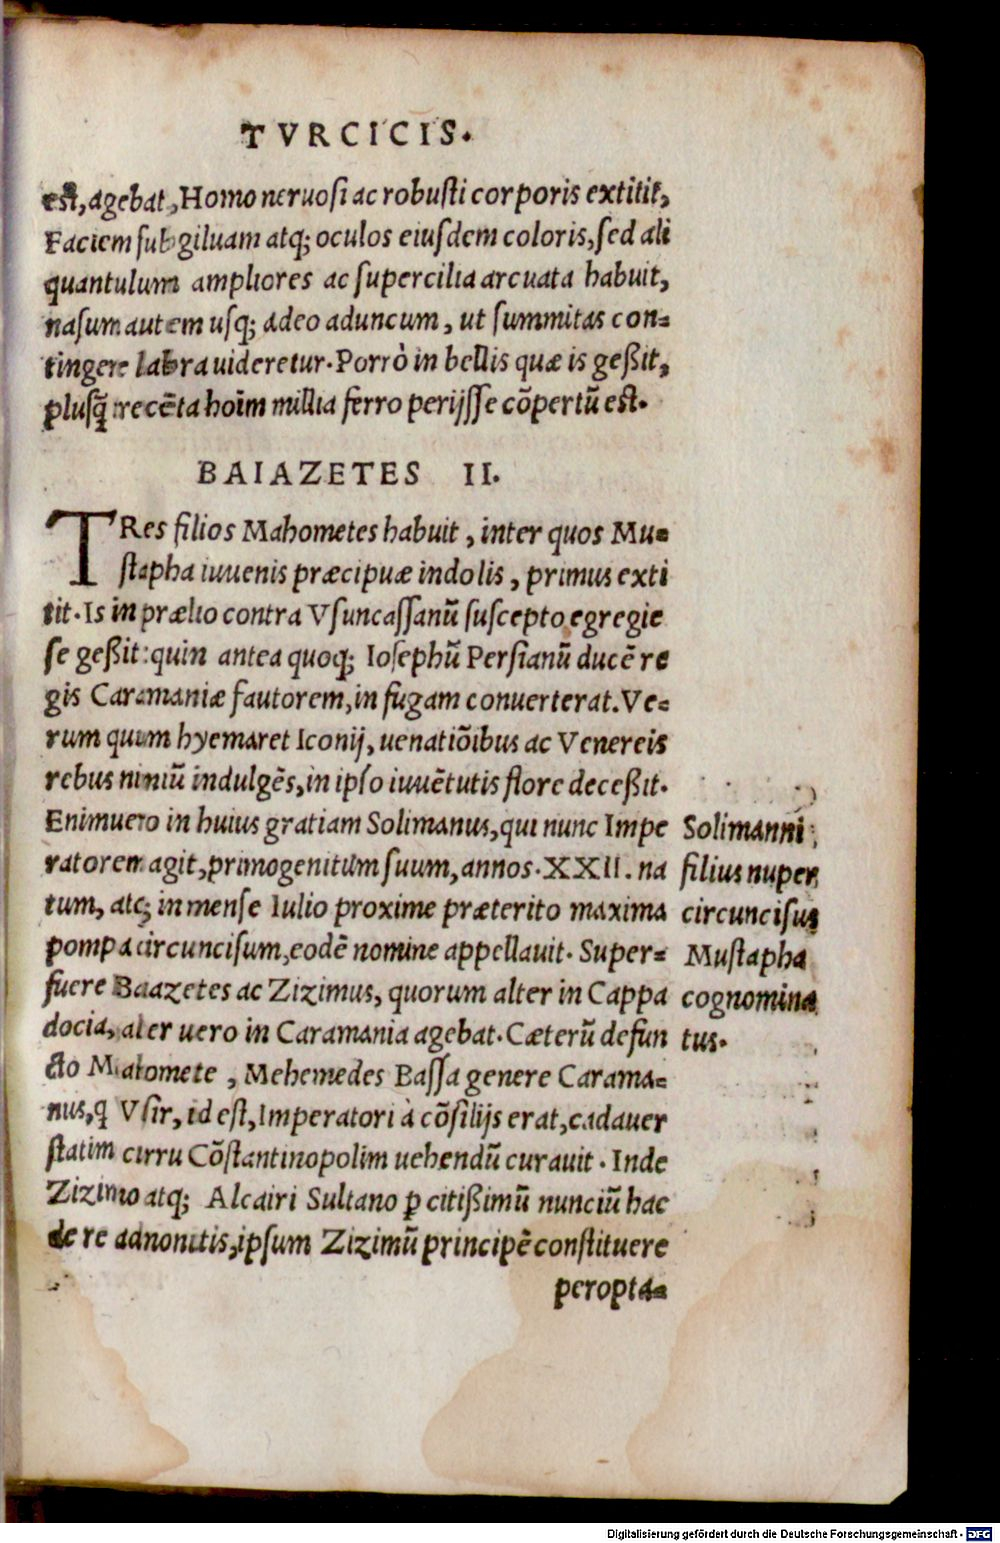 TVRCICIS.
est, agebat, Homo neruosi ac robusti corporis extitit,
Faciem subgiluam atq; oculos eiusdem coloris, sed ali
quantulum ampliores ac supercilia arcuata habuit,
nasum autem usq; adeo aduncum, ut summitas con=
tingere labra uideretur. Porrò in bellis quæ is geßit,
plusq̃ trecẽta hoĩm millia ferro perijsse cõpertũ est.
BAIAZETES II.
TRes filios Mahometes habuit, inter quos Mu=
stapha iuuenis præcipuæ indolis, primus exti
tit. Is in prælio contra Vsuncassanũ suscepto egregie
se geßit: quin antea quoq; Iosephũ Persianũ ducẽ re
gis Caramaniæ fautorem, in fugam conuerterat. Ve=
rum quum hyemaret Iconij, uenatiõibus ac Venereis
rebus nimiũ indulgẽs, in ipso iuuẽtutis flore deceßit.
Enimuero in huius gratiam Solimanus, qui nunc Impe
ratorem agit, primogenitum suum, annos. XXII. na
tum, atq; in mense Iulio proxime præterito maxima
pompa circuncisum, eodẽ nomine appellauit. Super=
fuere Baazetes ac Zizimus, quorum alter in Cappa
docia, alter uero in Caramania agebat. Cæterũ defun
cto Mahomete, Mehemedes Bassa genere Carama=
nus, q Vsir, id est, Imperatori à cõsilijs erat, cadauer
statim curru Cõstantinopolim uehendũ curauit. Inde
Zizimo atq; Alcairi Sultano ꝑ citißimũ nunciũ hac
de re admonitis, ipsum Zizimũ principẽ constituere
peropta=
Solimanni
filius nuper
circuncisus
Mustapha
cognomina
tus.
Digitalisierung gefördert durch die Deutsche Forschungsgemeinschaft - DFG